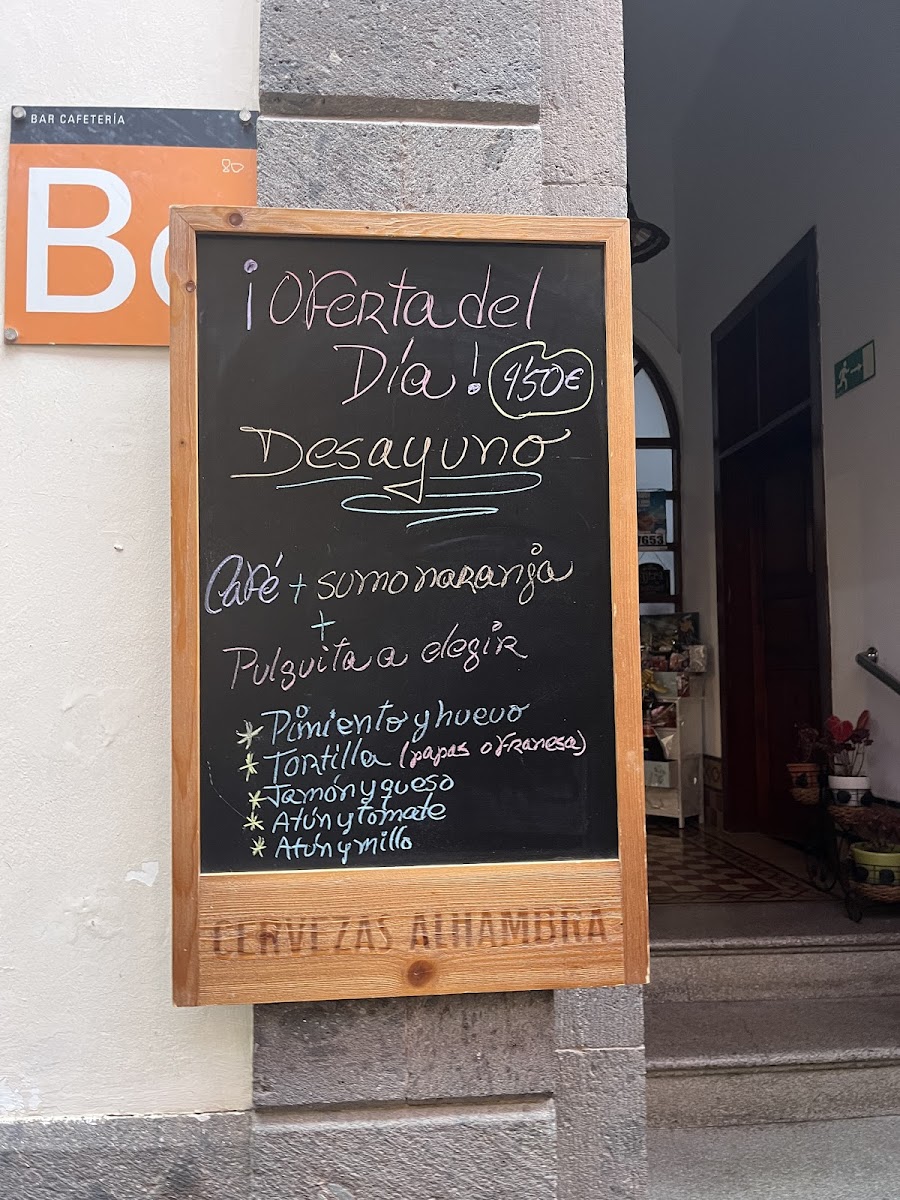 BAR CAFETERÍA
Bc
¡Oferta del
Día! 4'50€
Desayuno
Café + sumo naranja
+
Pulguita a elegir
* Pimiento y huevo
* Tortilla (papas o franesa)
* Jamón y queso
* Atún y tomate
* Atún y millo
CERVEZAS ALHAMBRA
7653